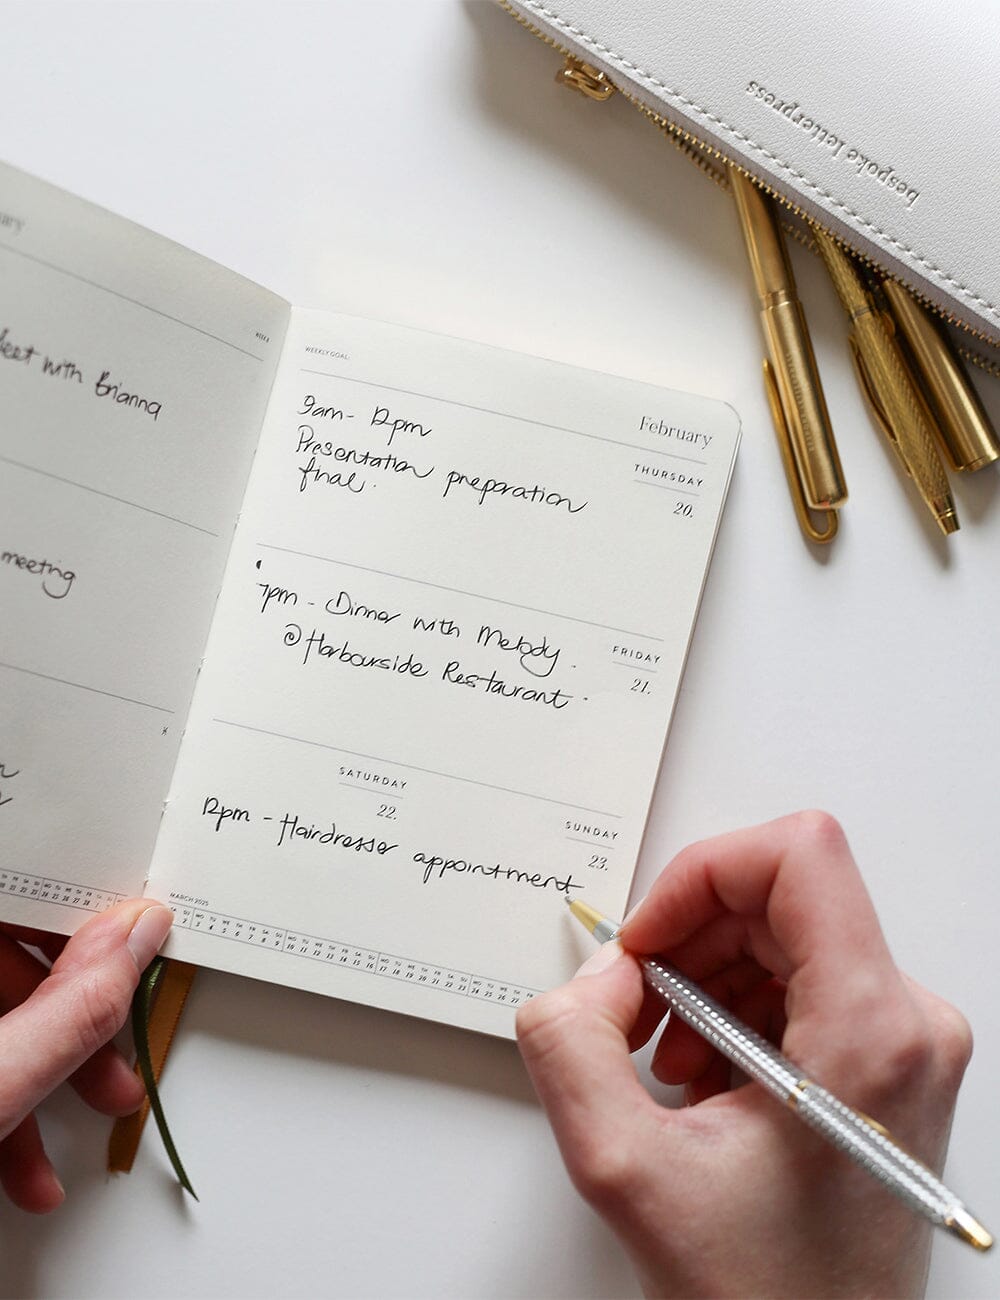 bespoke letterpress
meet with Brianna
meeting
WEEKLY GOAL:
February
9am - 12pm
Presentation preparation
final.
THURSDAY
20.
7pm - Dinner with Melody.
@ Harbourside Restaurant.
FRIDAY
21.
SATURDAY
22.
12pm - Hairdresser appointment
SUNDAY
23.
MARCH 2025